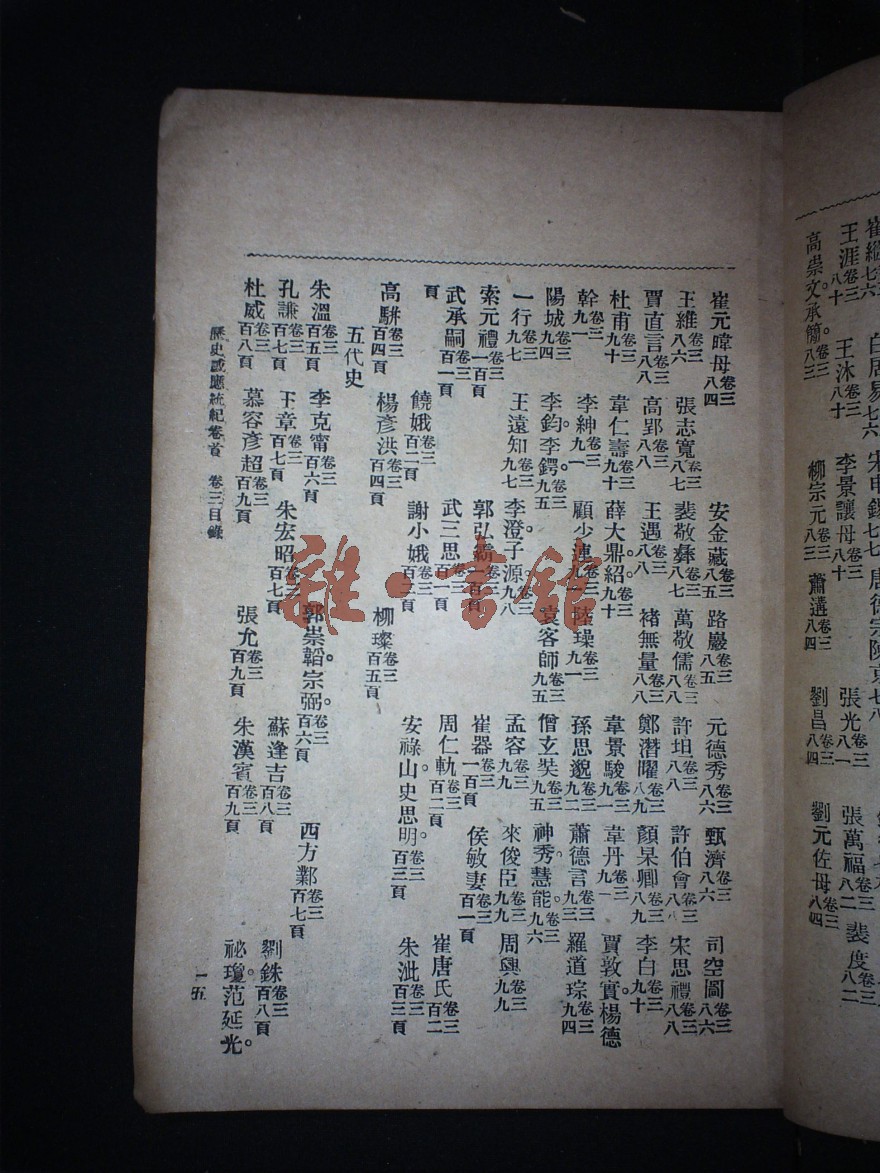 王涯卷三八十 王沐卷三八十 李景讓母卷三八十 張光卷三八一 張萬福卷三八二 裴度卷三八二
高崇文。承簡。卷三八三 柳宗元卷三八三 蕭遘卷三八四 劉昌卷三八四 劉元佐母卷三八四
崔元暐母卷三八四 安金藏卷三八五 路巖卷三八五 元德秀卷三八六 甄濟卷三八六 司空圖卷三八六
王維卷三八六 張志寬卷三八七 裴敬彝卷三八七 萬敬儒卷三八八 許坦卷三八八 許伯會卷三八八 宋思禮卷三八八
賈直言卷三八八 高郢卷三八八 王遇卷三八八 褚無量卷三八八 鄭潛曜卷三八九 顏杲卿卷三八九 李白卷三九十
杜甫卷三九十 韋仁壽卷三九十 薛大鼎紹。卷三九十 韋景駿卷三九一 韋丹卷三九一 賈敦實。楊德
幹卷三九一 李紳卷三九一 顧少連卷三九一 陸璪卷三九一 孫思邈卷三九二 蕭德言卷三九三 羅道琮卷三九四
陽城卷三九四 李鈞。李鍔。卷三九五 袁客師卷三九五 僧玄奘卷三九五 神秀。慧能。卷三九六
一行卷三九七 王遠知卷三九七 李澄。子源。卷三九八 孟容卷三九九 來俊臣卷三九九 周興卷三九九
索元禮卷三一百頁 郭弘霸卷三一百頁 崔器卷三一百頁 侯敏妻卷三百一頁
武承嗣卷三百一頁 武三思卷三百一頁 周仁軌卷三百二頁 崔唐氏卷三百二
頁 饒娥卷三百二頁 謝小娥卷三百二頁 安祿山。史思明。卷三百三頁 朱泚卷三百三頁
高駢卷三百四頁 楊彥洪卷三百四頁 柳璨卷三百五頁
五代史
朱溫卷三百五頁 李克甯卷三百六頁 郭崇韜。宗弼。卷三百六頁 西方鄴卷三百七頁
孔謙卷三百七頁 王章卷三百七頁 朱宏昭卷三百七頁 蘇逢吉卷三百八頁 劉銖卷三百八頁
杜威卷三百八頁 慕容彥超卷三百九頁 張允卷三百九頁 朱漢賓卷三百九頁 祕瓊。范延光。
歷史感應統紀卷首 卷三目錄 一五
雜·書館